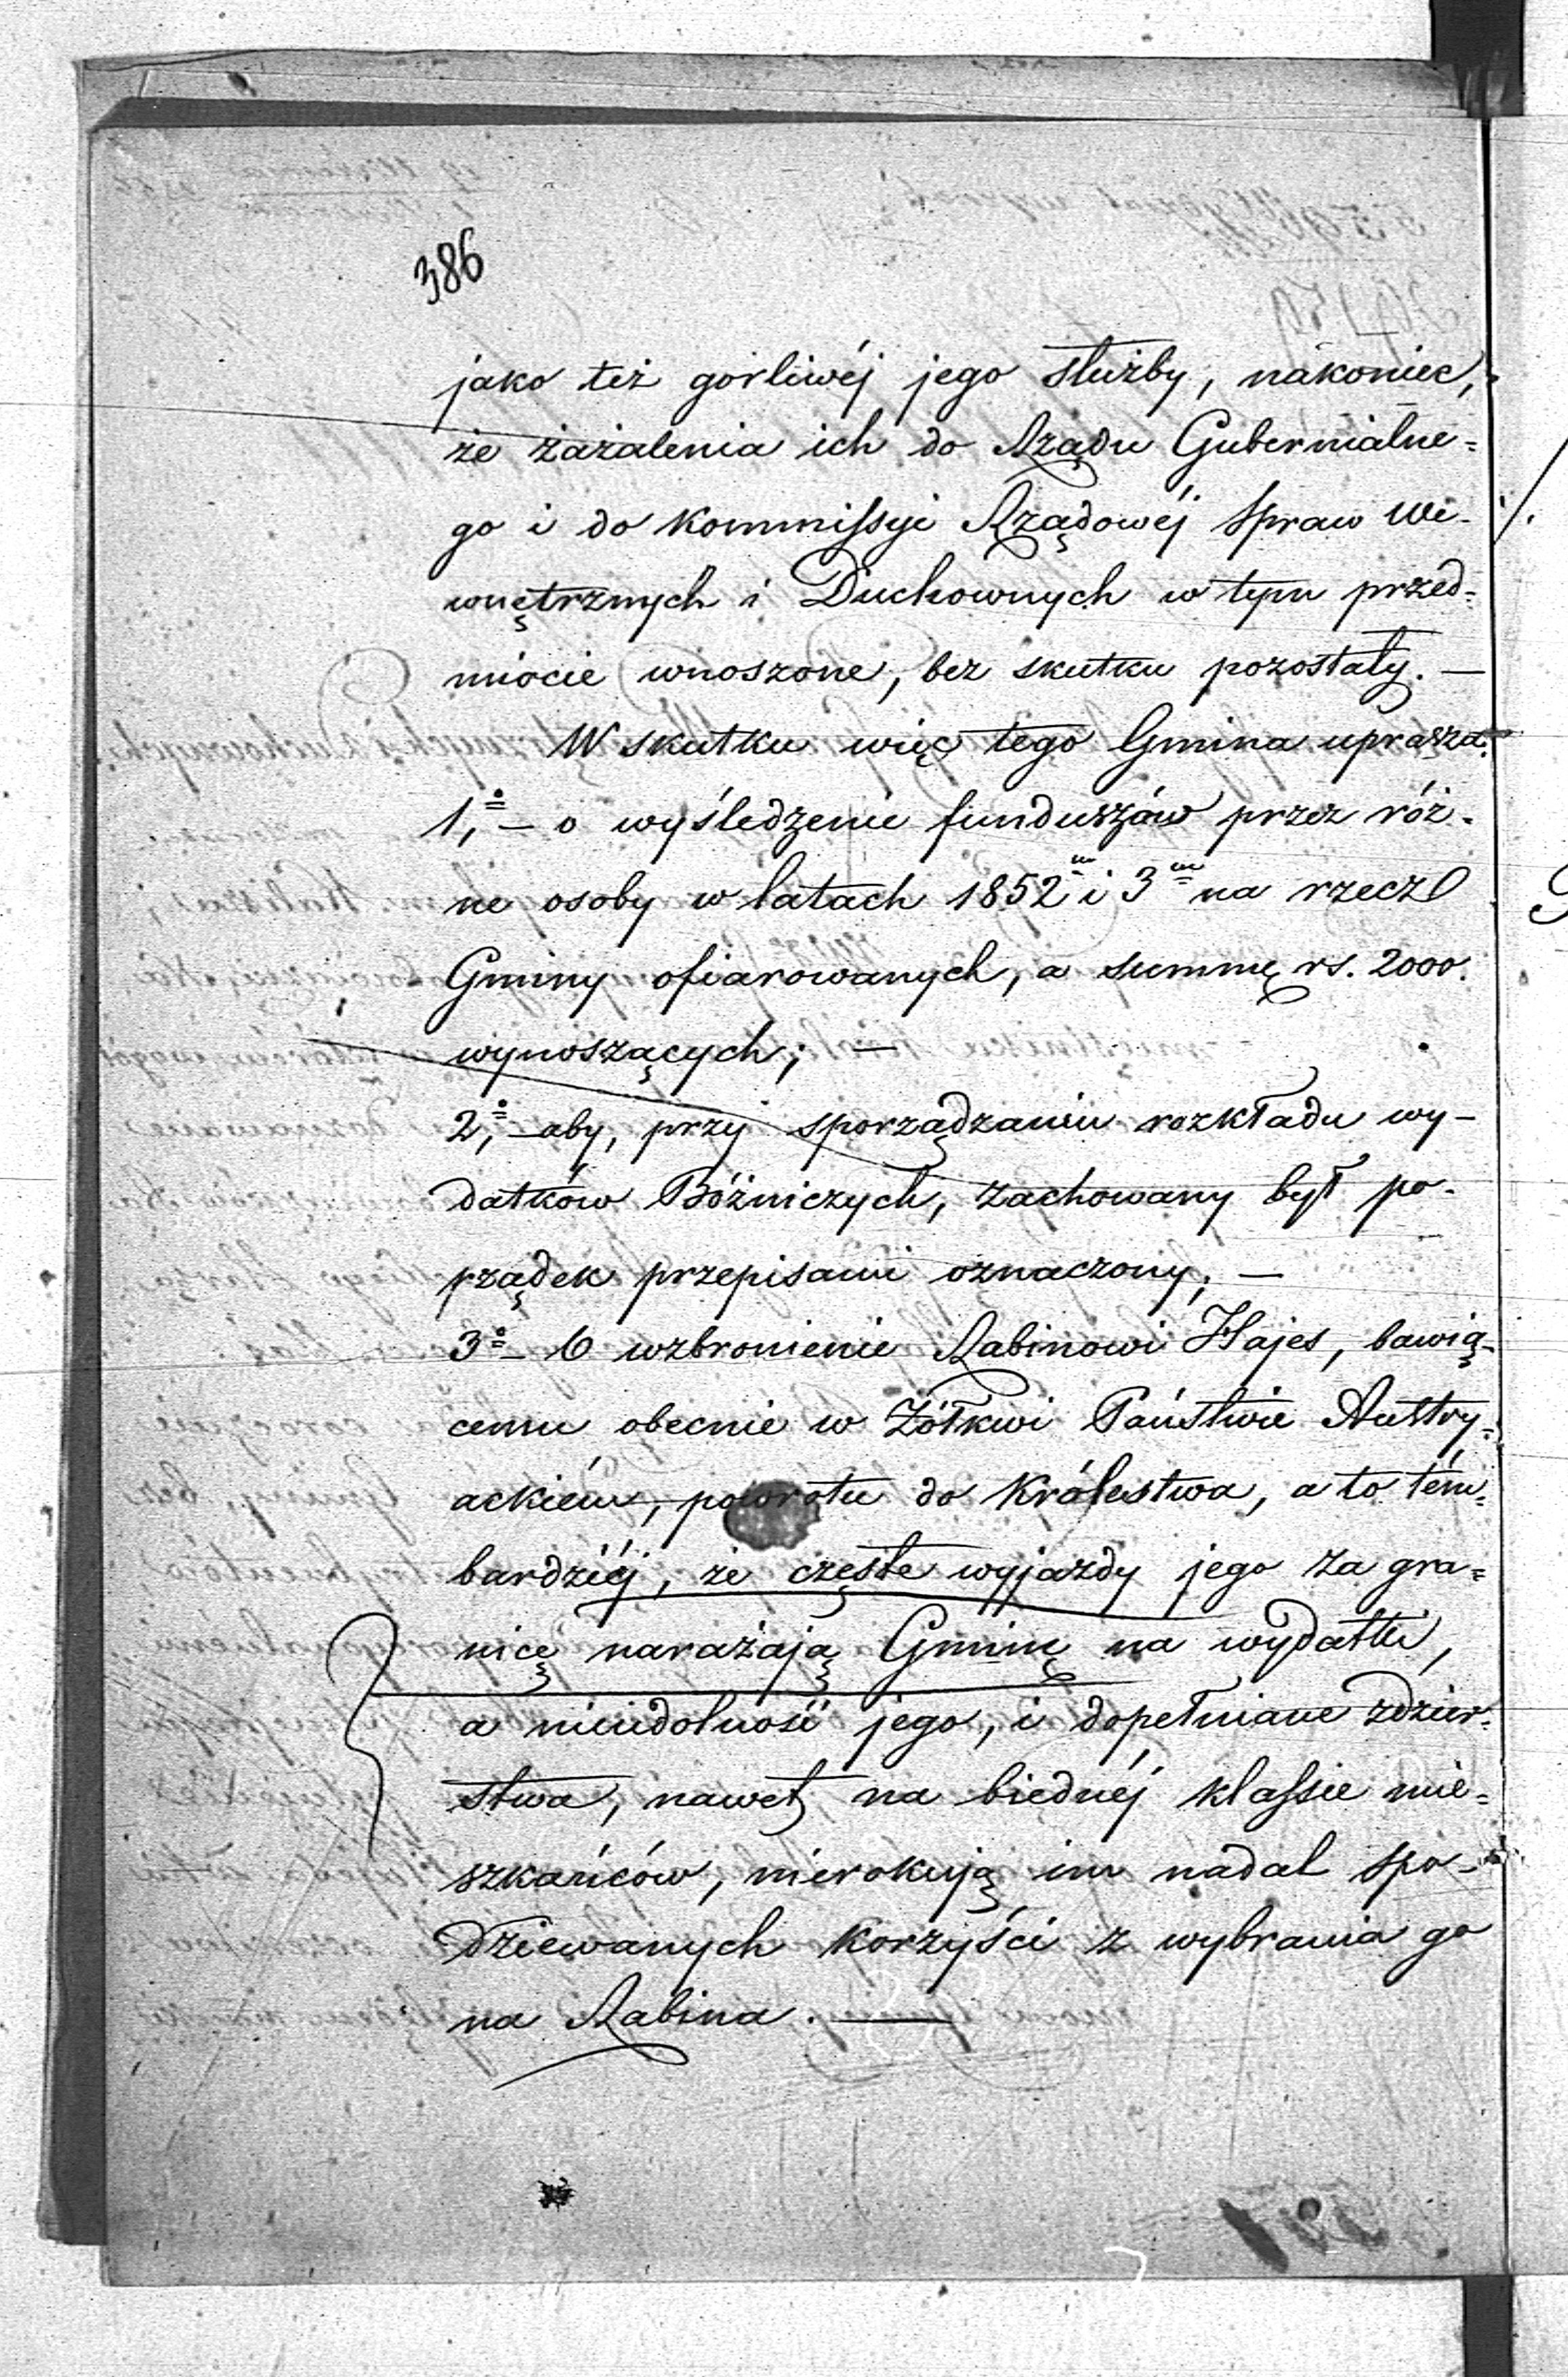 386
jako też gorliwéj jego służby, nakoniec,
że zażalenia ich do Rządu Gubernialne=
go i do Kommissyi Rządowéj Spraw We-
wnętrznych i Duchownych w tym przed=
miocie wnoszone, bez skutku pozostały. —
W skutku więc tego Gmina uprasza:
1,º — o wyśledzenie funduszów przez róż-
ne osoby w latach 1852m i 3m na rzecz
Gminy ofiarowanych, a summę rs. 2000.
wynoszących; —
2,º — aby, przy sporządzaniu rozkładu wy-
datków Bóźniczych, zachowany był po-
rządek przepisami oznaczony; —
3º — O wzbronienie Rabinowi Hajes, bawią-
cemu obecnie w Żółkwi Państwie Austry=
ackiém, powrotu do Królestwa, a to tém-
bardziéj, że częste wyjazdy jego za gra=
nicę narażają Gminę na wydatki,
a nieudolność jego, i dopełniane zdzier-
stwa, nawet na biednéj klassie mie=
szkańców, nierokują im nadal spo-
dziewanych korzyści z wybrania go
na Rabina. —